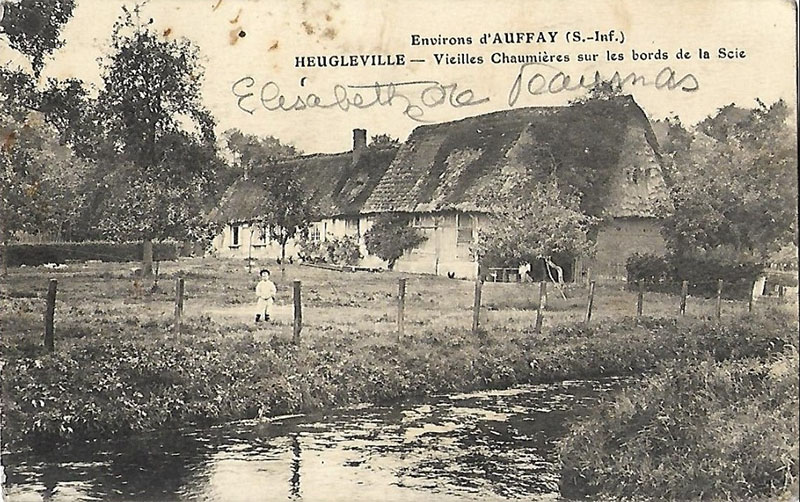 Environs d'AUFFAY (S.-Inf.)
HEUGLEVILLE — Vieilles Chaumières sur les bords de la Scie
Elisabeth de